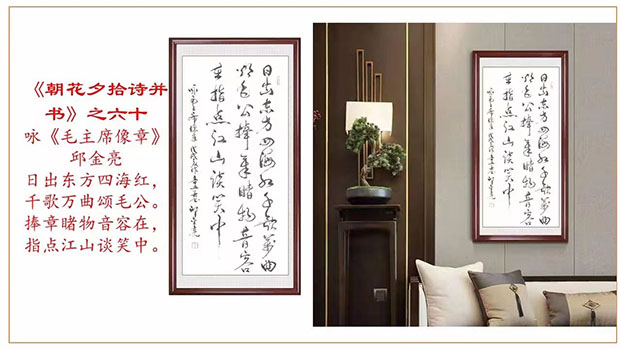 《朝花夕拾诗并
书》之六十
咏《毛主席像章》
邱金亮
日出东方四海红，
千歌万曲颂毛公。
捧章睹物音容在，
指点江山谈笑中。
日出东方四海红千歌萬曲
颂毛公捧章睹物音容
在指点江山谈笑中
咏毛主席像章
日出东方四海红千歌萬曲
颂毛公捧章睹物音容
在指点江山谈笑中
咏毛主席像章